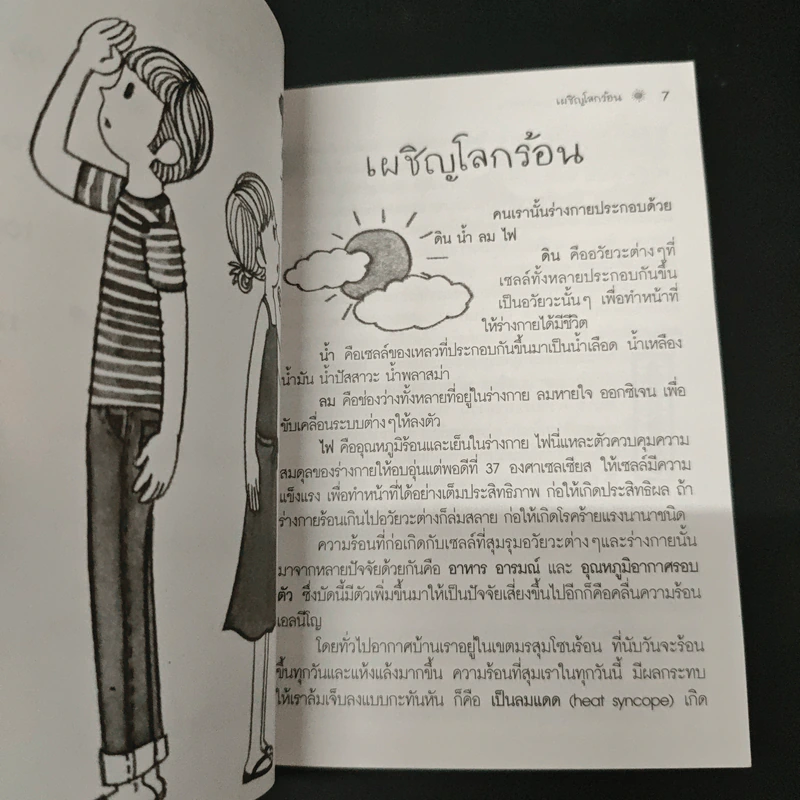 เผชิญโลกร้อน 7
เผชิญโลกร้อน
คนเรานั้นร่างกายประกอบด้วย
ดิน น้ำ ลม ไฟ
ดิน คืออวัยวะต่างๆที่
เซลล์ทั้งหลายประกอบกันขึ้น
เป็นอวัยวะนั้นๆ เพื่อทำหน้าที่
ให้ร่างกายได้มีชีวิต
น้ำ คือเซลล์ของเหลวที่ประกอบกันขึ้นมาเป็นน้ำเลือด น้ำเหลือง
น้ำมัน น้ำปัสสาวะ น้ำพลาสม่า
ลม คือช่องว่างทั้งหลายที่อยู่ในร่างกาย ลมหายใจ ออกซิเจน เพื่อ
ขับเคลื่อนระบบต่างๆให้ลงตัว
ไฟ คืออุณหภูมิร้อนและเย็นในร่างกาย ไฟนี่แหละตัวควบคุมความ
สมดุลของร่างกายให้อบอุ่นแต่พอดีที่ 37 องศาเซลเซียส ให้เซลล์มีความ
แข็งแรง เพื่อทำหน้าที่ได้อย่างเต็มประสิทธิภาพ ก่อให้เกิดประสิทธิผล ถ้า
ร่างกายร้อนเกินไปอวัยวะต่างก็ล่มสลาย ก่อให้เกิดโรคร้ายแรงนานาชนิด
ความร้อนที่ก่อเกิดกับเซลล์ที่สุมรุมอวัยวะต่างๆและร่างกายนั้น
มาจากหลายปัจจัยด้วยกันคือ อาหาร อารมณ์ และ อุณหภูมิอากาศรอบ
ตัว ซึ่งบัดนี้มีตัวเพิ่มขึ้นมาให้เป็นปัจจัยเสี่ยงขึ้นไปอีกก็คือคลื่นความร้อน
เอลนีโญ
โดยทั่วไปอากาศบ้านเราอยู่ในเขตมรสุมโซนร้อน ที่นับวันจะร้อน
ขึ้นทุกวันและแห้งแล้งมากขึ้น ความร้อนที่สุมเราในทุกวันนี้ มีผลกระทบ
ให้เราล้มเจ็บลงแบบกะทันหัน ก็คือ เป็นลมแดด (heat syncope) เกิด